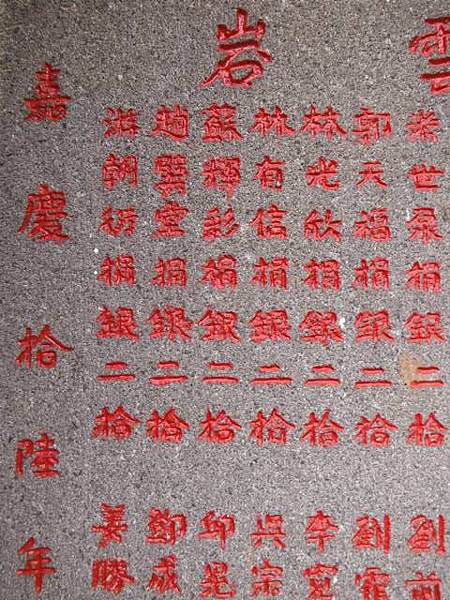 雲岩
世捐銀二拾 劉前
郭天福捐銀二拾 劉
林光欣捐銀二拾 李寬
林有信捐銀二拾 吳宗
蘇輝彭捐銀二拾 邱晃
趙巽捐銀二拾 鄭成
游朝衍捐銀二拾 姜勝
嘉慶拾陸年